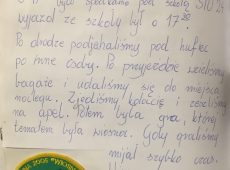 spotkaliśmy pod szkołą
wyjazd ze szkoły był o 17
Po drodze podjechaliśmy pod hufiec
po inne osoby. Po przyjeździe wzieliśmy
bagaże i udaliśmy się do miejsca
noclegu. Zjedliśmy kolację i szliśmy
na apel. Potem była gra, której
tematem była wiosna. Gdy graliśmy
mijał szybko czas.